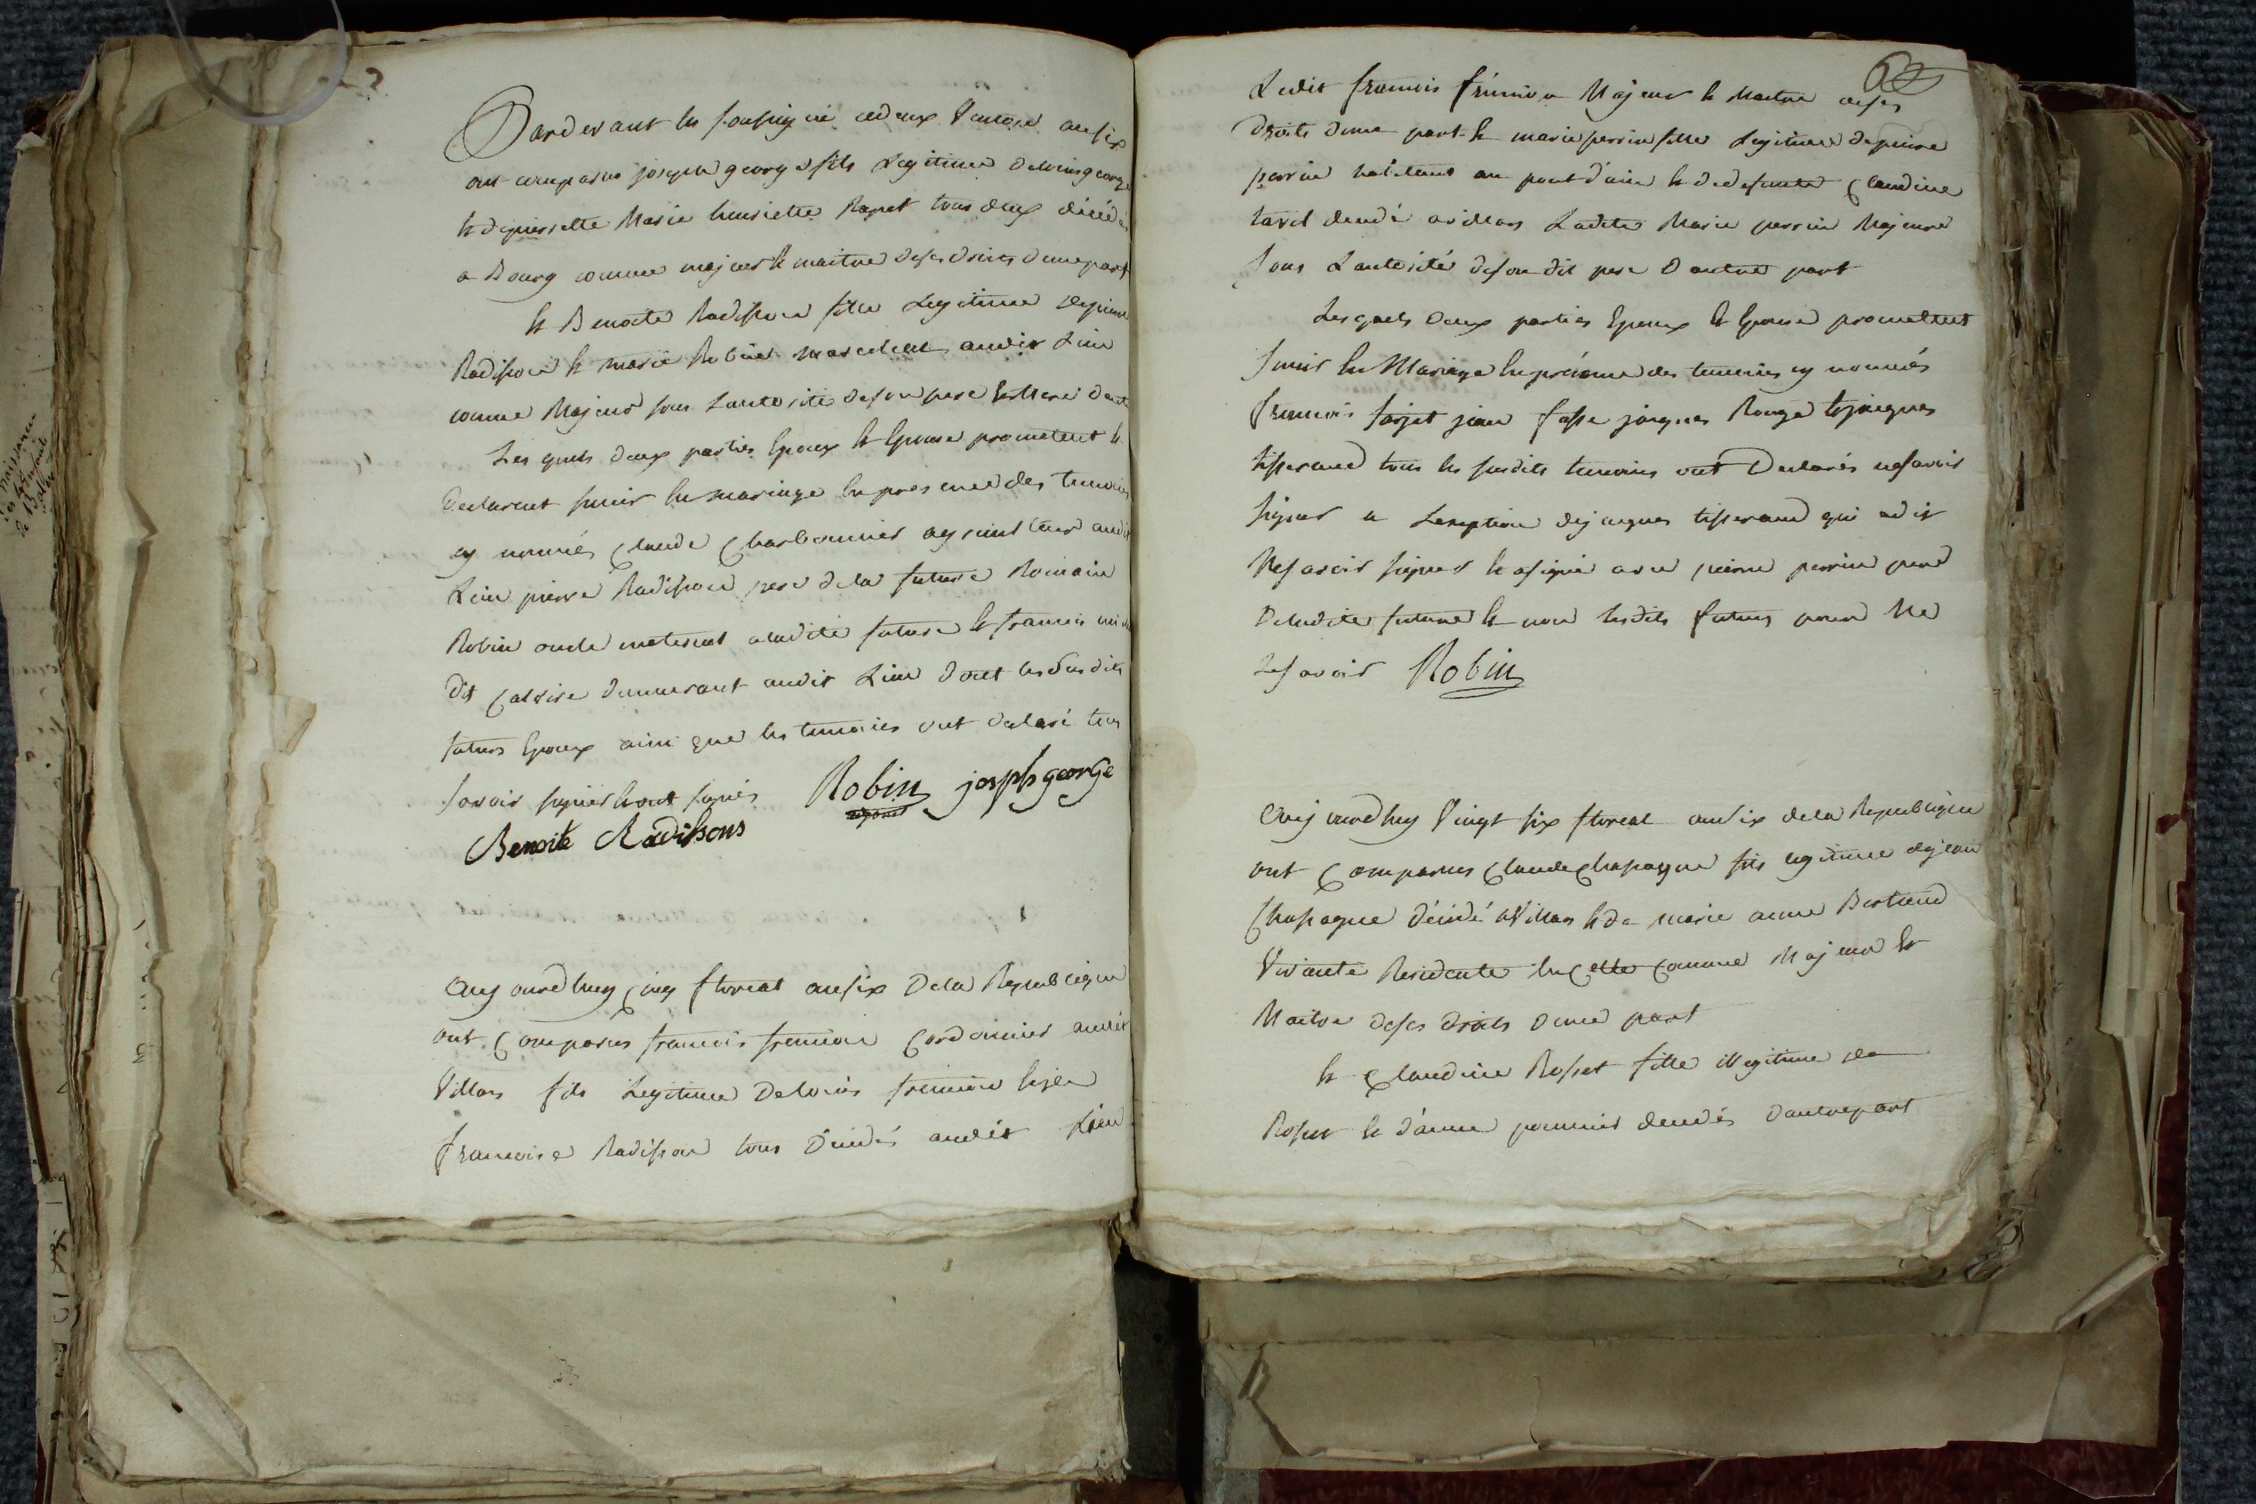 Pardevant les soussigné cedeux Ventose ansix
ont comparus joseph george fils Legitime Delouis george
et depierrette Marie henriette Ragnet tous deux décédés
a Bourg comme majeur et maitre desesdroits dune part
et Benoite Radisson fille Legitime depierre
Radisson et marie Robin marechal audit Lieu
comme Majeur sous Lautorité deson pere et Mere
Les quels deux parties Epoux et Epouse prometent et
Declarent sunir En mariage En presence des temoins
cy nommés Claude Charbonnier audit
Lieu pierre Radisson pere dela future Romain
Robin oncle maternel aladite future et francois
dit demeurant audit Lieu dont les susdits
futurs Epoux ainsi que les temoins ont declaré tous
savoir signer Et ont signés Robin joseph george
adjoint
Benoite Radissons
Aujourdhuy cinq floreal ansix Dela Republique
ont Comparus francois fremion Cordonnier audit
Villars fils Legitime Delouis fremion
francoise Radisson tous Décédés audit Lieu
Ledit francois frémion Majeur et Maitre deses
droits dune part et marie perrin fille Legitime depierre
perrin habitant au pont d'ain et dedefunte Claudine
decedé avillars Ladite Marie perrin Majeure
sous Lautorité deson dit pere Dautre part
Lesquels deux parties Epoux Et Epouse promettent
sunir En Mariage En présence des temoins cy nommés
francois jean fasse jacques Rouge Et jacques
tisserand tous les susdits temoins ont Declarés nesavoir
signer a Lexception dejacques tisserand qui adit
Nesavoir signer et asigné avec pierre perrin pere
Deladite future Et non lesdits futurs pour Ne
Lesavoir Robin
Aujourdhuy Vingt six floreal ansix dela Republique
ont Comparus Claude Chapagne fils legitime dejean
Chapagne décédé aVillars et de marie anne Bertrand
Vivante Residente En Cette Commune Majeur Et
Maitre deses droits dune part
et Claudine Rosset fille illegitime de
Rosset et d'anne pommier decedés dautrepart